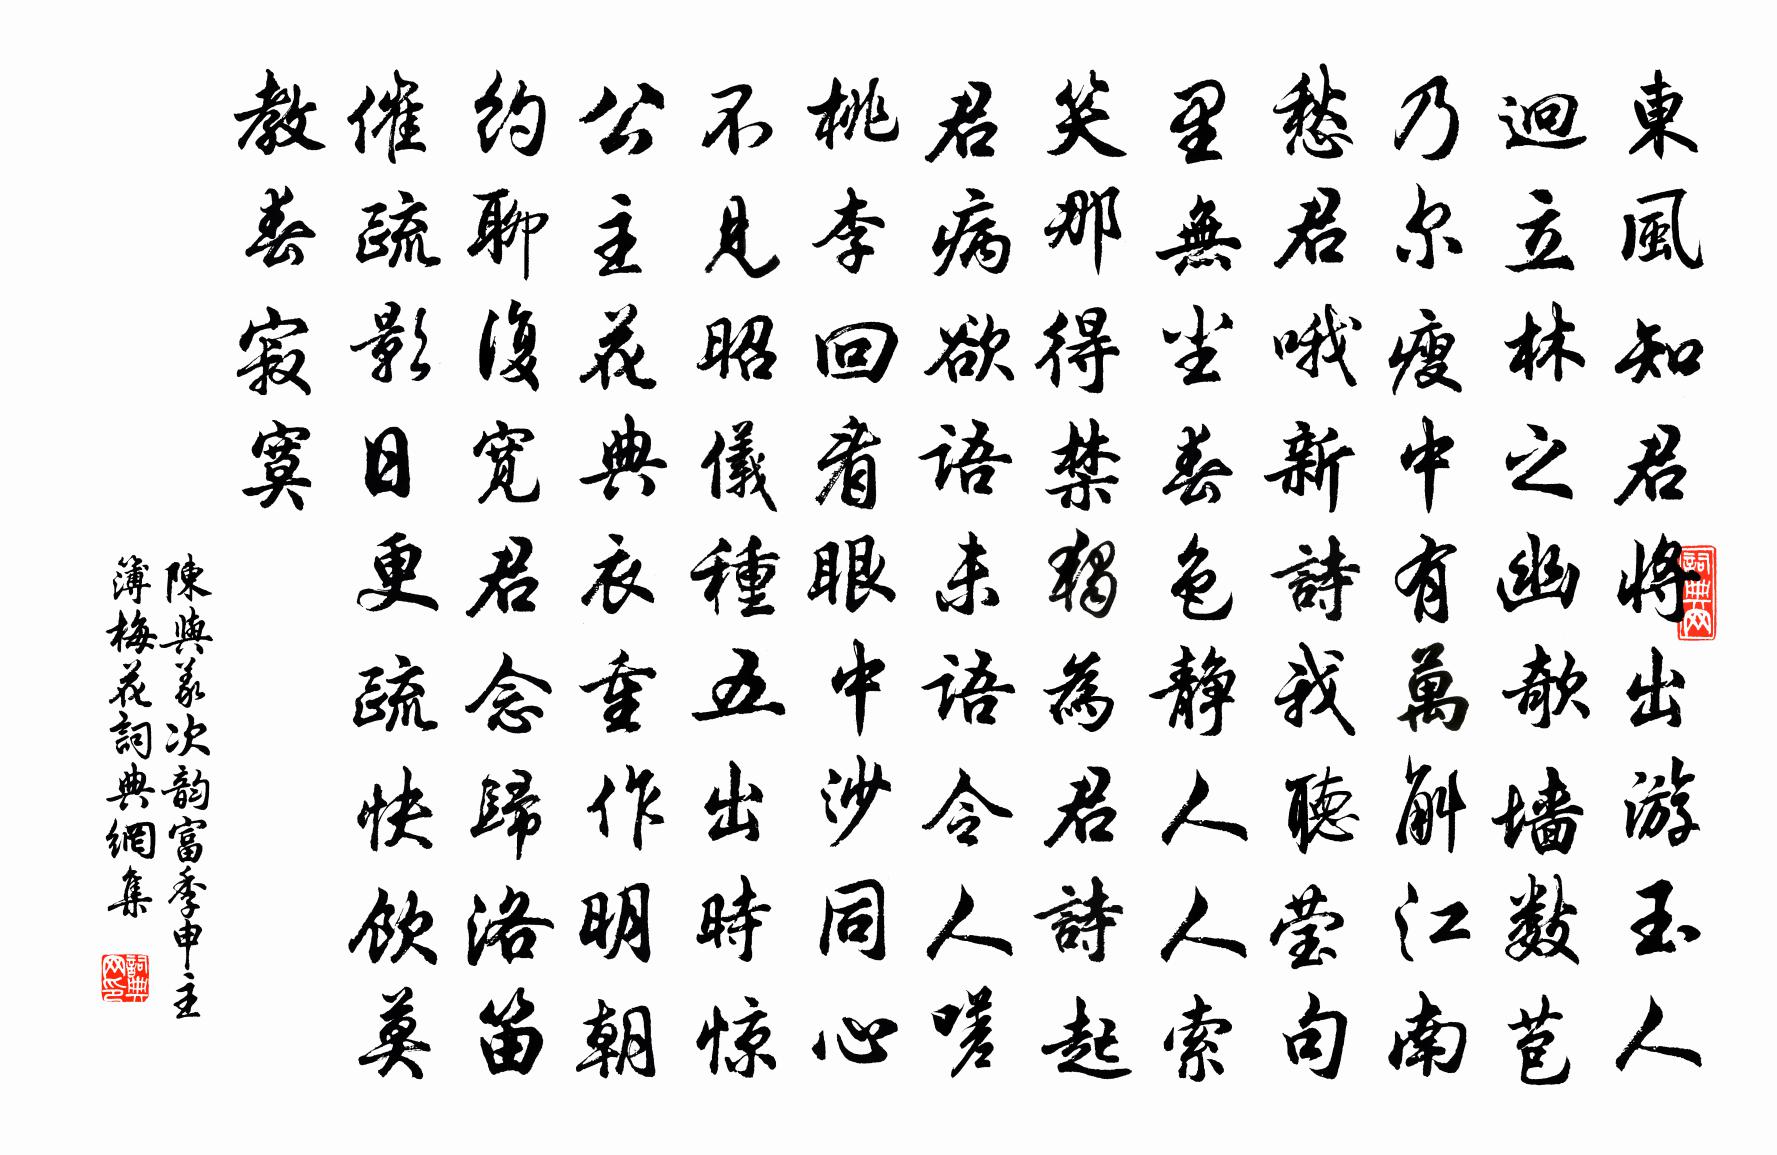 東風知君將出游玉人
迥立林之幽欹墻數苞
乃尔瘦中有萬斛江南
愁君哦新詩我聽瑩句
里無尘春色靜人人索
笑那得禁獨為君詩起
君病欲語未語令人嗟
桃李回看眼中沙同心
不見昭儀種五出時惊
公主花典衣重作明朝
約聊復寬君念歸洛笛
催疏影日更疏快飲莫
教春寂寞
陳與義次韵富季申主
簿梅花詞典網集
詞典网
詞典网印